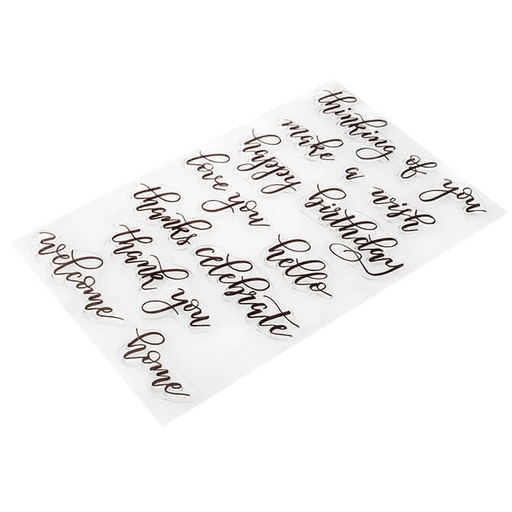 thinking of you
make a wish
happy
birthday
love you
hello
thanks
celebrate
thank you
welcome
home